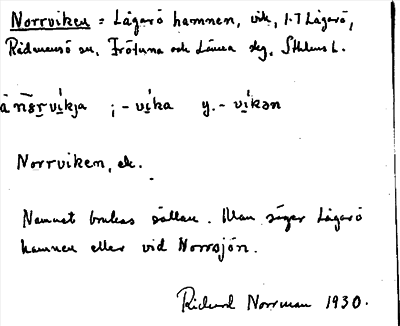 Norrviken = Lågarö hamnen, vik, 1.7 Lågarö,
Rådmansö sn, Frötuna och Länna skg, Sthlms l.
i - vika y. - vikən
Norrviken, ek.
Namnet brukas sällan. Man säger Lågarö
hamnen eller vid Norrsjön.
Rickard Norrman 1930.